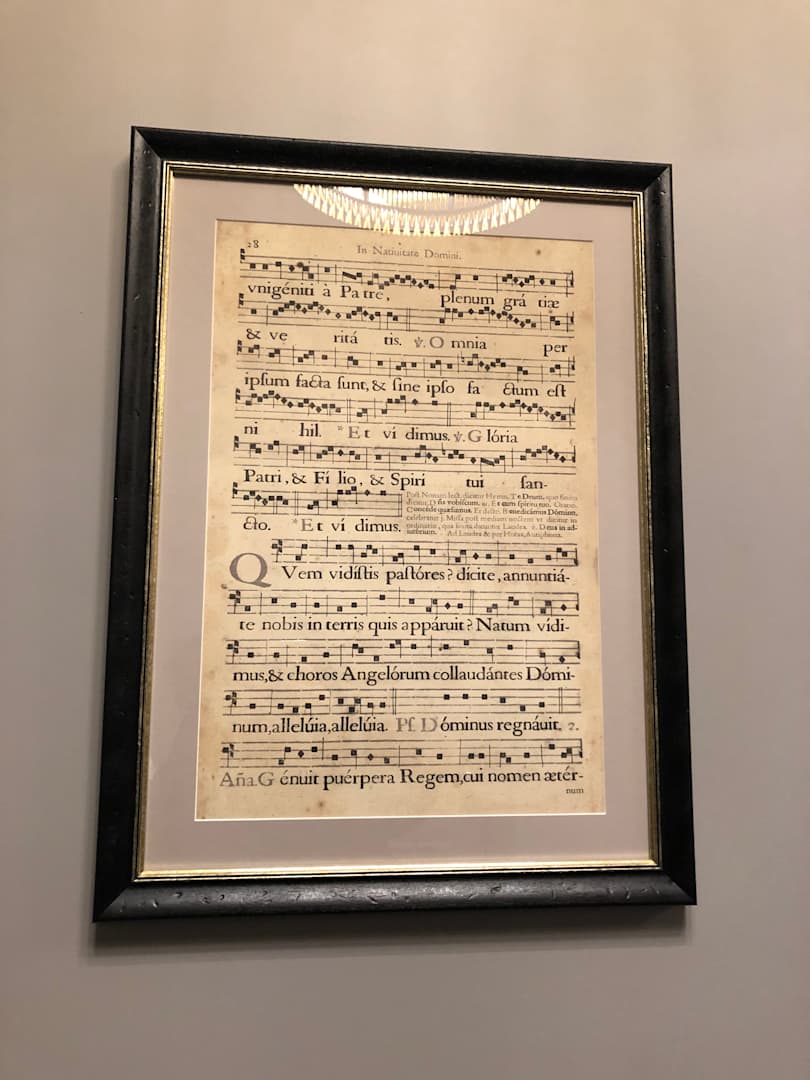 28
In Natiuitate Domini.
vnigéniti à Patre, plenum grá tiæ
& ve ritá tis. ℣. O mnia per
ipſum facta ſunt, & ſine ipſo fa ctum eſt
ni hil. * Et ví dimus. ℣. G lória
Patri, & Fí lio, & Spirí tui ſan-
cto. * Et ví dimus.
Post Nonam lect. dicitur Hymn. Te Deum, quo finito
dicitur, Dñs vobiſcum. ℟. Et cum ſpiritu tuo. Oratio.
Concéde quæſumus. Et dicto, Benedicámus Dómino,
celebratur j. Miſſa poſt mediam noctem vt dicitur in
ordinario, qua finita dicuntur Laudes. ℣. Deus in ad-
iutorium. Ad Laudes & per Horas, Antiphona.
QVem vidíſtis paſtóres? dícite, annuntiá-
te nobis in terris quis appáruit? Natum vídi-
mus, & choros Angelórum collaudántes Dómi-
num, allelúia, allelúia. Pſ. Dóminus regnáuit. 2.
Aña. G énuit puérpera Regem, cui nomen ætér-
num